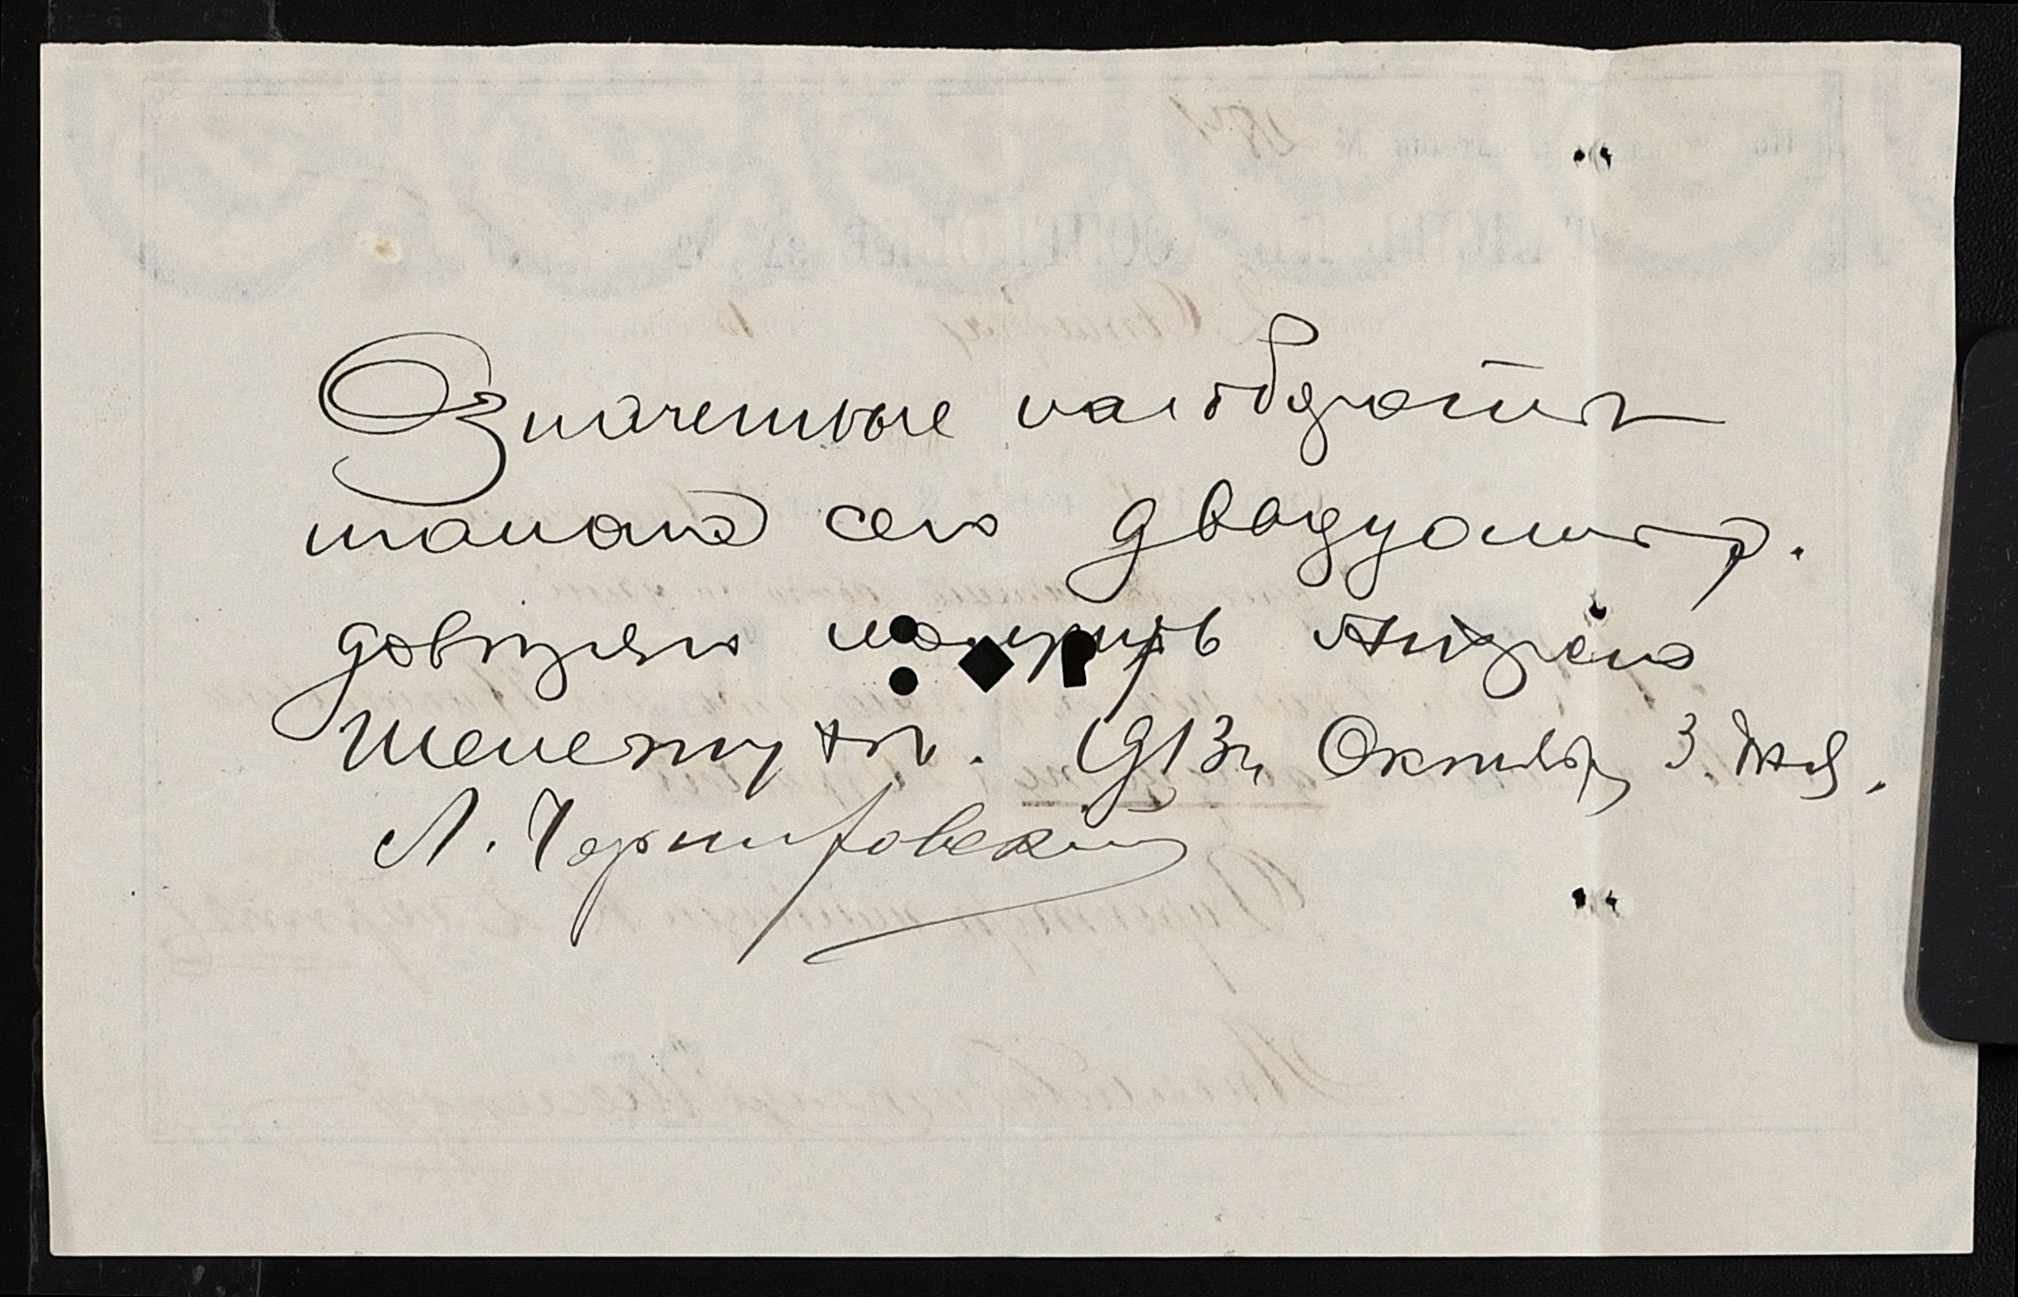 Означенные на обороте
талона сего двадцать р.
доверяю получить Андрею
Шелепугину. 1913 г. Октября 3. дня.
Л. Черниговский